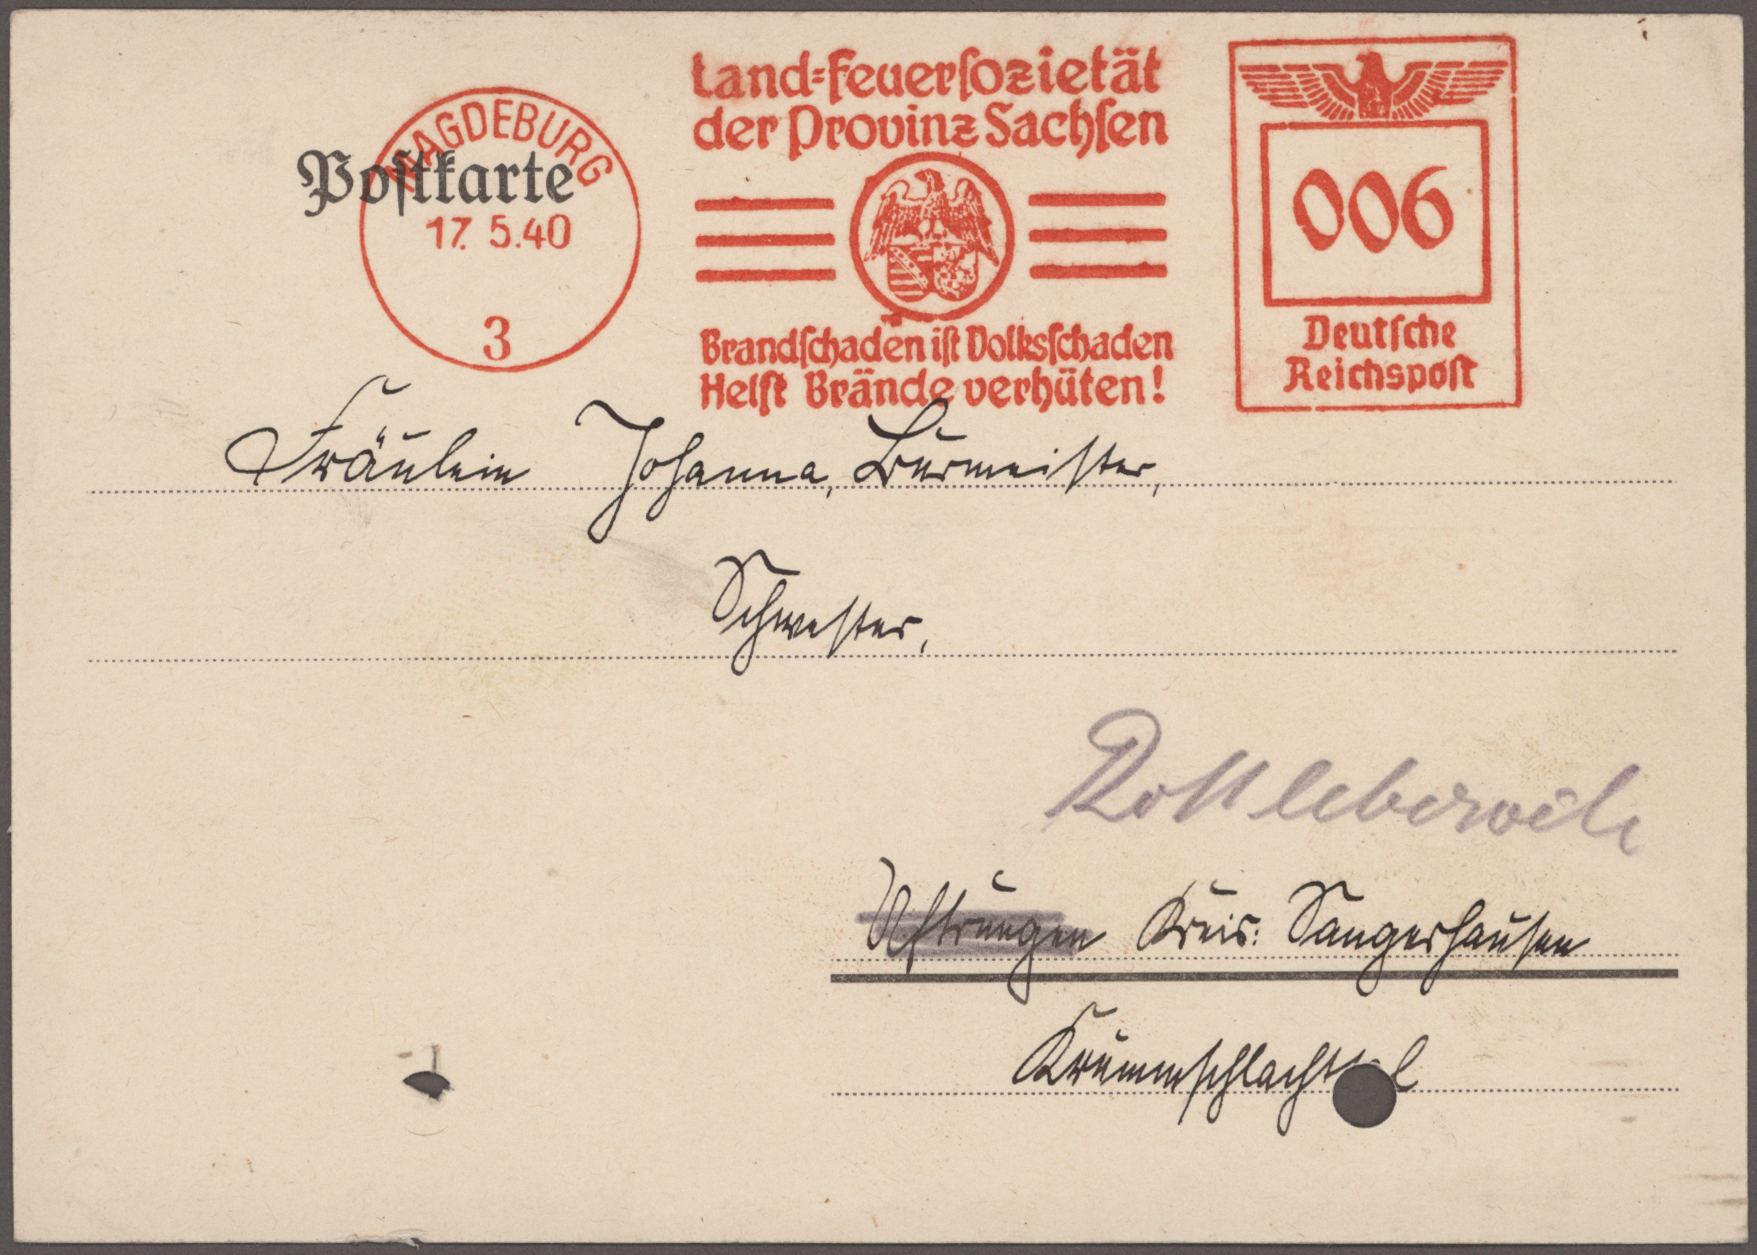 Land=Feuersozietät
der Provinz Sachsen
MAGDEBURG
Postkarte
17.5.40
3
006
Deutsche
Reichspost
Brandschaden ist Volksschaden
Helft Brände verhüten!
Fräulein Johanna Burmeister,
Schwester,
Rottleberode
Uftrungen Kreis: Sangerhausen
Krummschlachttal